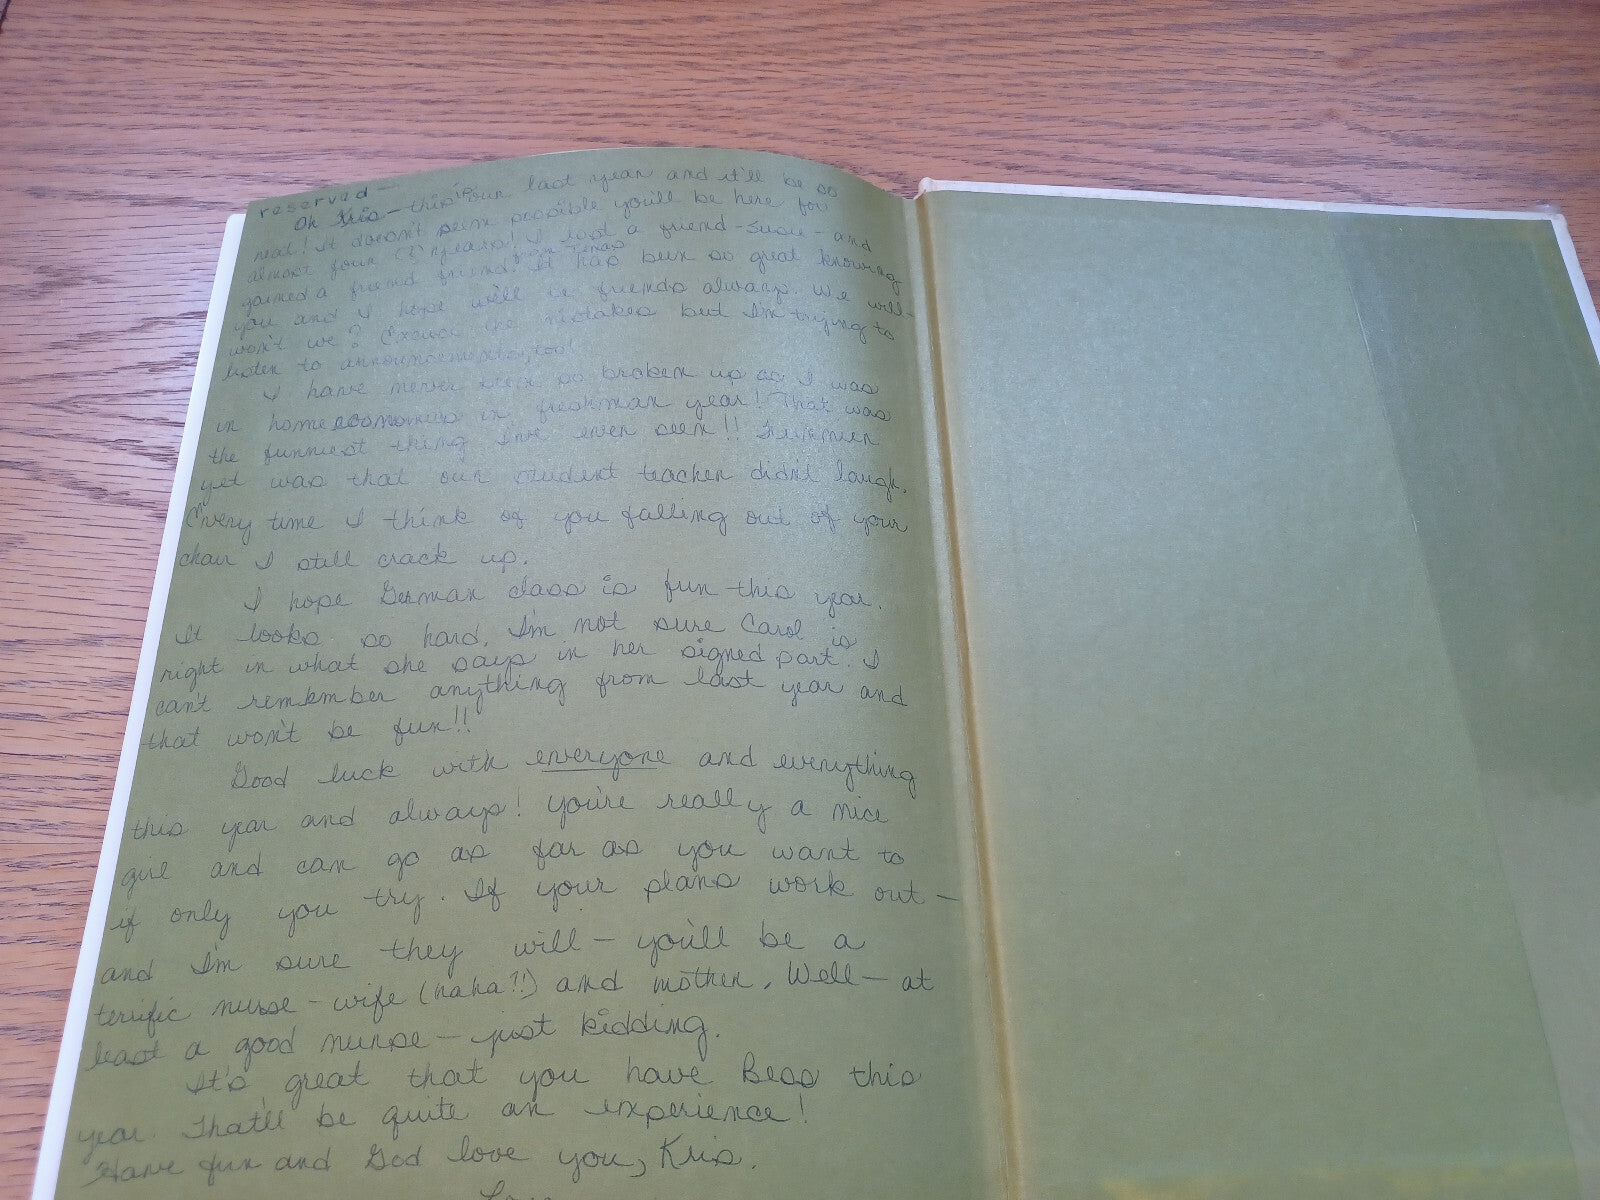 reserved —
Oh Kris — this our last year and it'll be so
neat! It doesn't seem possible you'll be here for
almost four (?) years! I lost a friend - Susie - and
gained a friend friend! in Texas It has been so great knowing
you and I hope we'll be friends always. We will -
won't we? Excuse the mistakes but I'm trying to
listen to announcements, too!
I have never seen so broken up as I was
in home economics in freshman year! That was
the funniest thing I've ever seen!! Funnier
yet was that our student teacher didn't laugh.
Every time I think of you falling out of your
chair I still crack up.
I hope German class is fun this year.
It looks so hard. I'm not sure Carol is
right in what she says in her signed part. I
can't remember anything from last year and
that won't be fun!!
Good luck with everyone and everything
this year and always! You're really a nice
girl and can go as far as you want to
if only you try. If your plans work out —
and I'm sure they will — you'll be a
terrific nurse - wife (haha!!) and mother. Well — at
least a good nurse — just kidding.
It's great that you have Bess this
year. That'll be quite an experience!
Have fun and God love you, Kris.